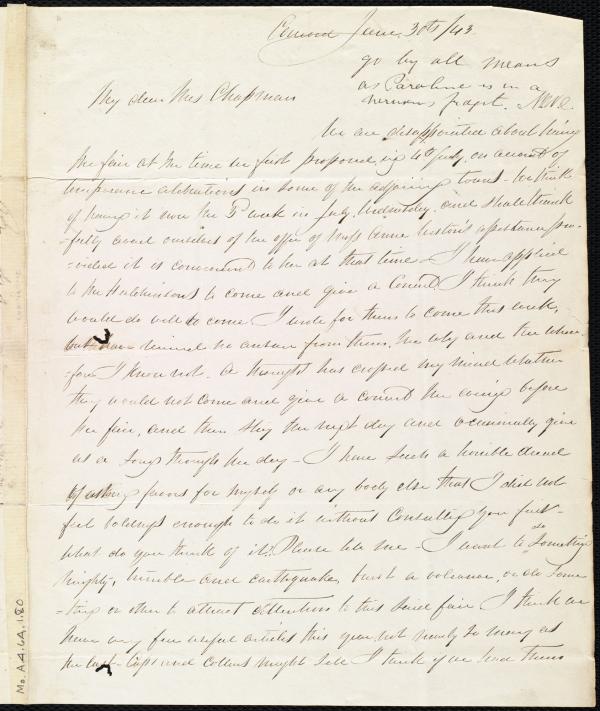 Concord June, 30th /43
go by all means
as Caroline is in a
nervous fidget. M.W.C.
My dear Mrs Chapman
We are disappointed about having
the fair at the time we first proposed, viz 4th July, on account of
temperance celebrations in some of the adjoining towns - We think
of having it now the 3d week in July, Wednesday, and shall thank
-fully avail ourselves of the offer of Miss Anne Weston's assistance pro-
-vided it is convenient to her at that time - I have applied
to the Hutchinsons to come and give a Concert I think they
would do well to come I wrote for them to come this week,
but have received no answer from them. The why and the where
-fore I know not - A thought has crossed my mind whether
they would not come and give a concert the evening before
the fair, and then stay the next day and occasionally give
us a song through the day - I have such a horrible dread
of asking favors for myself or any body else that I did not
feel boldness enough to do it without consulting you first -
what do you think of it? Please tell me - I want to do something
mighty, tremble and earthquake, burst a volcano, or do some
-thing or other to attract attention to this said fair I think we
have very few useful articles this year, not nearly so many as
the last - Caps and collars might sell I think if we had them
Ms. A.4.6A.1.80